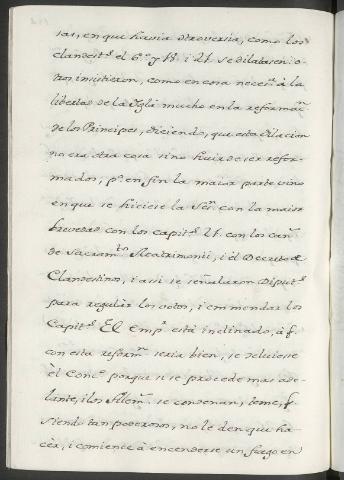 sas, en que havia otroversia, como los
clandest.s el 6.o y
se dilatasen: o-
tros insistieron, como en cosa neces.a à la
libertad de la Igl.a mucho en la reformac.n
de los Principes, diciendo, que esta dilacion
no era otra cosa sino huir de ser refor-
mados, p.o en fin la maior parte vino
en que se hiciese la Ses.n con la maior
brevedad con los capit.s 21. con los can.s
de Sacram.to Matrimonii, i el Decreto de
Clandestinos, i assi se señalaron Diput.s
para regular los votos, i emmendar los
Capit.s El Emp.r està inclinado, à q.
con esta reform.n seria bien, se
el Conc.o porque si se procede mas ade-
lante, i los Alem.s se condenan, teme, q.
siendo tan poderosos, no le den que ha-
cèr, i comience à encenderse un fuego en